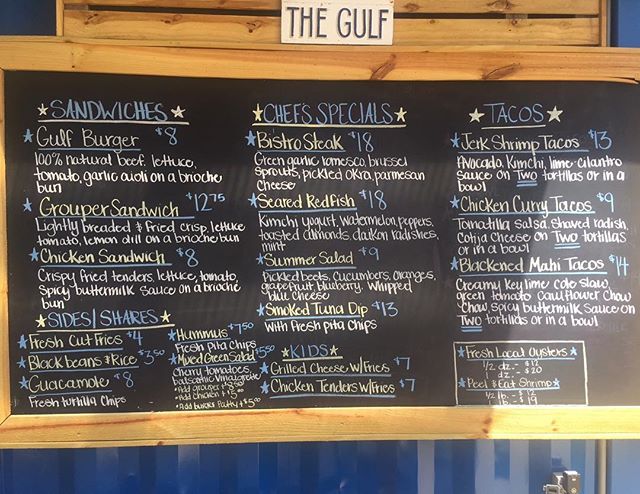 THE GULF
SANDWICHES
Gulf Burger $8
100% natural beef. lettuce,
tomato, garlic aioli on a brioche
bun
Grouper Sandwich $12.75
Lightly breaded & fried crisp, lettuce
tomato, lemon dill on a brioche bun
Chicken Sandwich $8
Crispy fried tenders, lettuce, tomato,
spicy buttermilk sauce on a brioche
bun
SIDES/SHARES
Fresh Cut Fries $4
Black beans & Rice $3.50
Guacamole $8
Fresh tortilla chips
Hummus $7.50
Fresh Pita chips
Mixed Green Salad $5.50
Cherry tomatoes,
balsamic vinaigrette
Add grouper
Add chicken + $5.00
Add burger Patty + $5.00
CHEF'S SPECIALS
Bistro Steak $18
Green garlic romesco, brussel
sprouts, pickled okra, parmesan
cheese
Seared Redfish $18
Kimchi yogurt, watermelon, peppers,
toasted almonds, daikon radishes,
mint
Summer Salad $9
Pickled beets, cucumbers, oranges,
grapefruit, blueberry, whipped
blue cheese
Smoked Tuna Dip $13
with Fresh pita chips
KIDS
Grilled Cheese w/Fries $7
Chicken Tenders w/Fries $7
TACOS
Jerk Shrimp Tacos $13
Avocado, Kimchi, lime-cilantro
sauce on Two tortillas or in a
bowl
Chicken Curry Tacos $9
Tomatilla salsa, shaved radish,
Cotija cheese on Two tortillas
or in a bowl
Blackened Mahi Tacos $14
Creamy key lime cole slaw,
green tomato cauliflower chow
chow, spicy buttermilk sauce on
Two tortillas or in a bowl
Fresh Local Oysters
1/2 dz. - $12
dz. - $20
Peel & Eat Shrimp
1/2 lb. -
lb. - $19